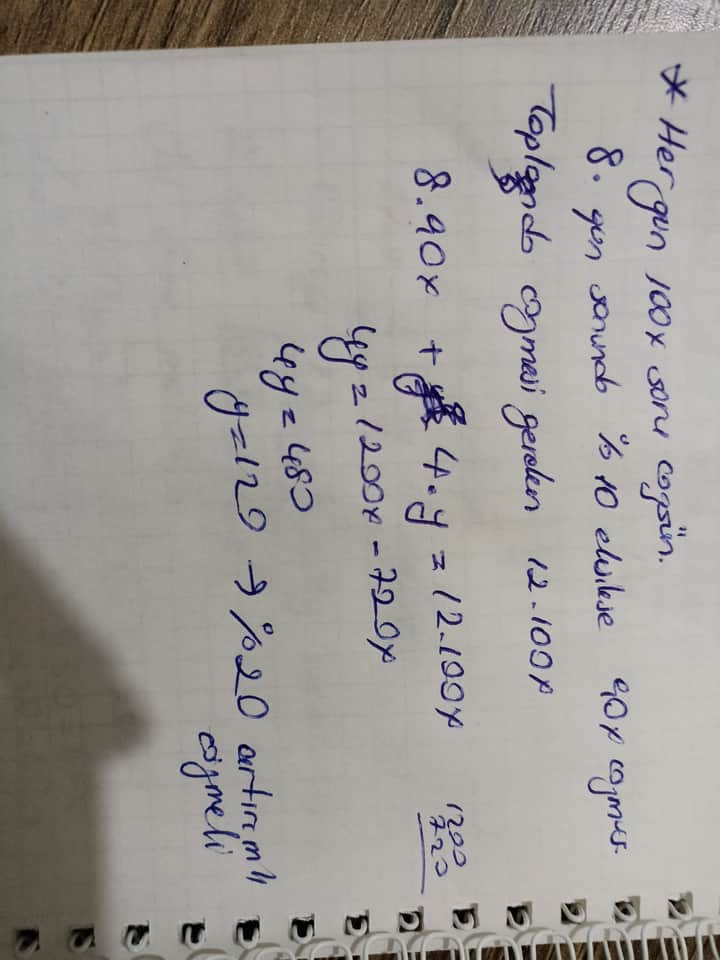 * Her gün 100x soru çözsün.
8. gün sonunda %10 eksikse 90x çözmüş.
Toplamda çözmesi gereken 12.100x
8.90x + 4.y = 12.100x
1200
720
4y = 1200x - 720x
4y = 480
y = 120 → %20 artırımlı
çözmeli